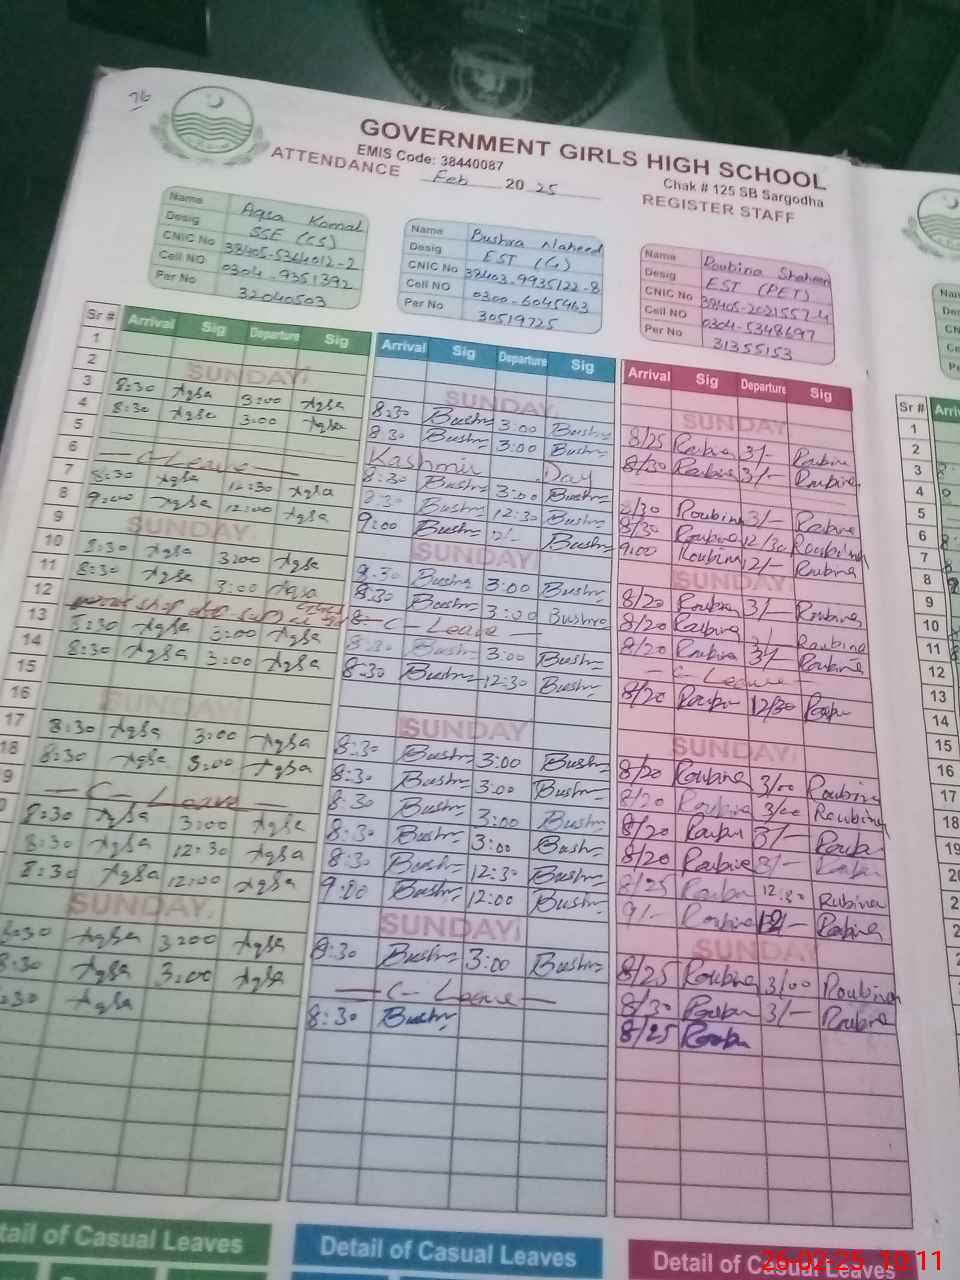 76
GOVERNMENT GIRLS HIGH SCHOOL
EMIS Code: 38440087
Chak # 125 SB Sargodha
ATTENDANCE Feb 2025 REGISTER STAFF
Name Aqsa Komal
Desig SSE (CS)
CNIC No 38405-5364012-2
Cell NO 0304-9351392
Per No 32040503
Name Bushra Naheed
Desig EST (G)
CNIC No 38403-9935122-8
Cell NO 0300-6045463
Per No 30519725
Name Roubina Shaheen
Desig EST (PET)
CNIC No 38405-2021557-4
Cell NO 0304-5348697
Per No 31355153
Sr # Arrival Sig Departure Sig
1
2 SUNDAY
3 8:30 Aqsa 3:00 Aqsa
4 8:30 Aqsa 3:00 Aqsa
5
6 C-Leave
7 8:30 Aqsa 12:30 Aqsa
8 9:00 Aqsa 12:00 Aqsa
9 SUNDAY
10 8:30 Aqsa 3:00 Aqsa
11 8:30 Aqsa 3:00 Aqsa
12
13 8:30 Aqsa 3:00 Aqsa
14 8:30 Aqsa 3:00 Aqsa
15
16 SUNDAY
17 8:30 Aqsa 3:00 Aqsa
18 8:30 Aqsa 3:00 Aqsa
9 C- Leave
0 8:30 Aqsa 3:00 Aqsa
8:30 Aqsa 12:30 Aqsa
8:30 Aqsa 12:00 Aqsa
SUNDAY
8:30 Aqsa 3:00 Aqsa
8:30 Aqsa 3:00 Aqsa
:30 Aqsa
Arrival Sig Departure Sig
SUNDAY
8:30 Bushr 3:00 Bushr
8:30 Bushr 3:00 Bushr
Kashmir Day
8:30 Bushr 3:00 Bushr
8:30 Bushr 12:30 Bushr
9:00 Bushr 12/- Bushr
SUNDAY
8:30 Bushra 3:00 Bushr
8:30 Bushr 3:00 Bushra
C- Leave
8:30 Bushr 3:00 Bushr
8:30 Bushr 12:30 Bushr
SUNDAY
8:30 Bushr 3:00 Bushr
8:30 Bushr 3:00 Bushr
8:30 Bushr 3:00 Bushr
8:30 Bushr 3:00 Bushr
8:30 Bushr 12:30 Bushr
9:00 Bushr 12:00 Bushr
SUNDAY
8:30 Bushr 3:00 Bushr
C- Leave
8:30 Bushr
Arrival Sig Departure Sig
SUNDAY
8/25 Roubina 3/- Roubina
8/30 Roubina 3/- Roubina
8/30 Roubina 3/- Roubina
8/30 Roubina 12/30 Roubina
9:00 Roubina 12/- Roubina
SUNDAY
8/20 Roubina 3/- Roubina
8/20 Roubina 3/- Roubina
8/20 Roubina 3/- Roubina
C- Leave
8/20 Roubn 12/30 Roubn
SUNDAY
8/20 Roubina 3/00 Roubina
8/20 Roubina 3/00 Roubina
8/20 Roubn 3/- Roubn
8/20 Roubina 3/- Roubn
8/25 Roubn 12:30 Rubina
9/- Roubina 12/- Roubina
SUNDAY
8/25 Roubina 3/00 Roubina
8/30 Roubn 3/- Roubina
8/25 Roubn
Sr #
1
2
3
4
5
6
7
8
9
10
11
12
13
14
15
16
17
18
19
Detail of Casual Leaves
Detail of Casual Leaves
Detail of Casual Leaves
26-02-25 10:11